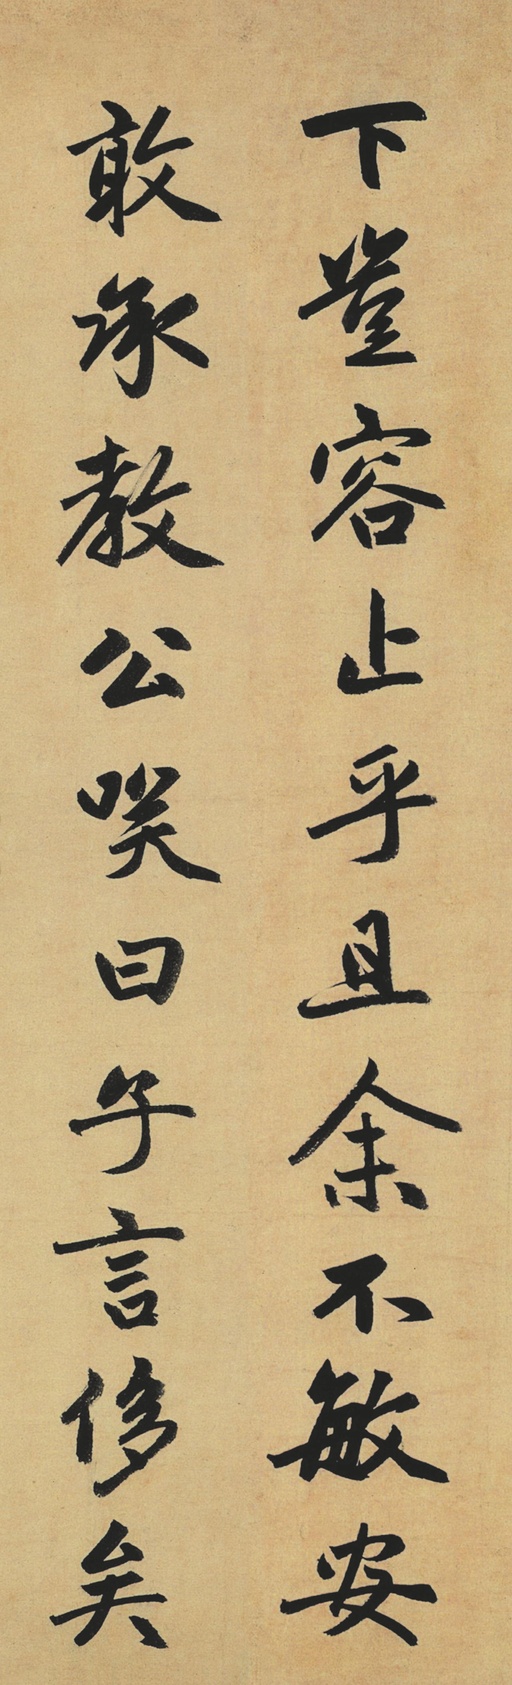 下豈容止乎且余不敏安
敢承教公咲曰子言侈矣